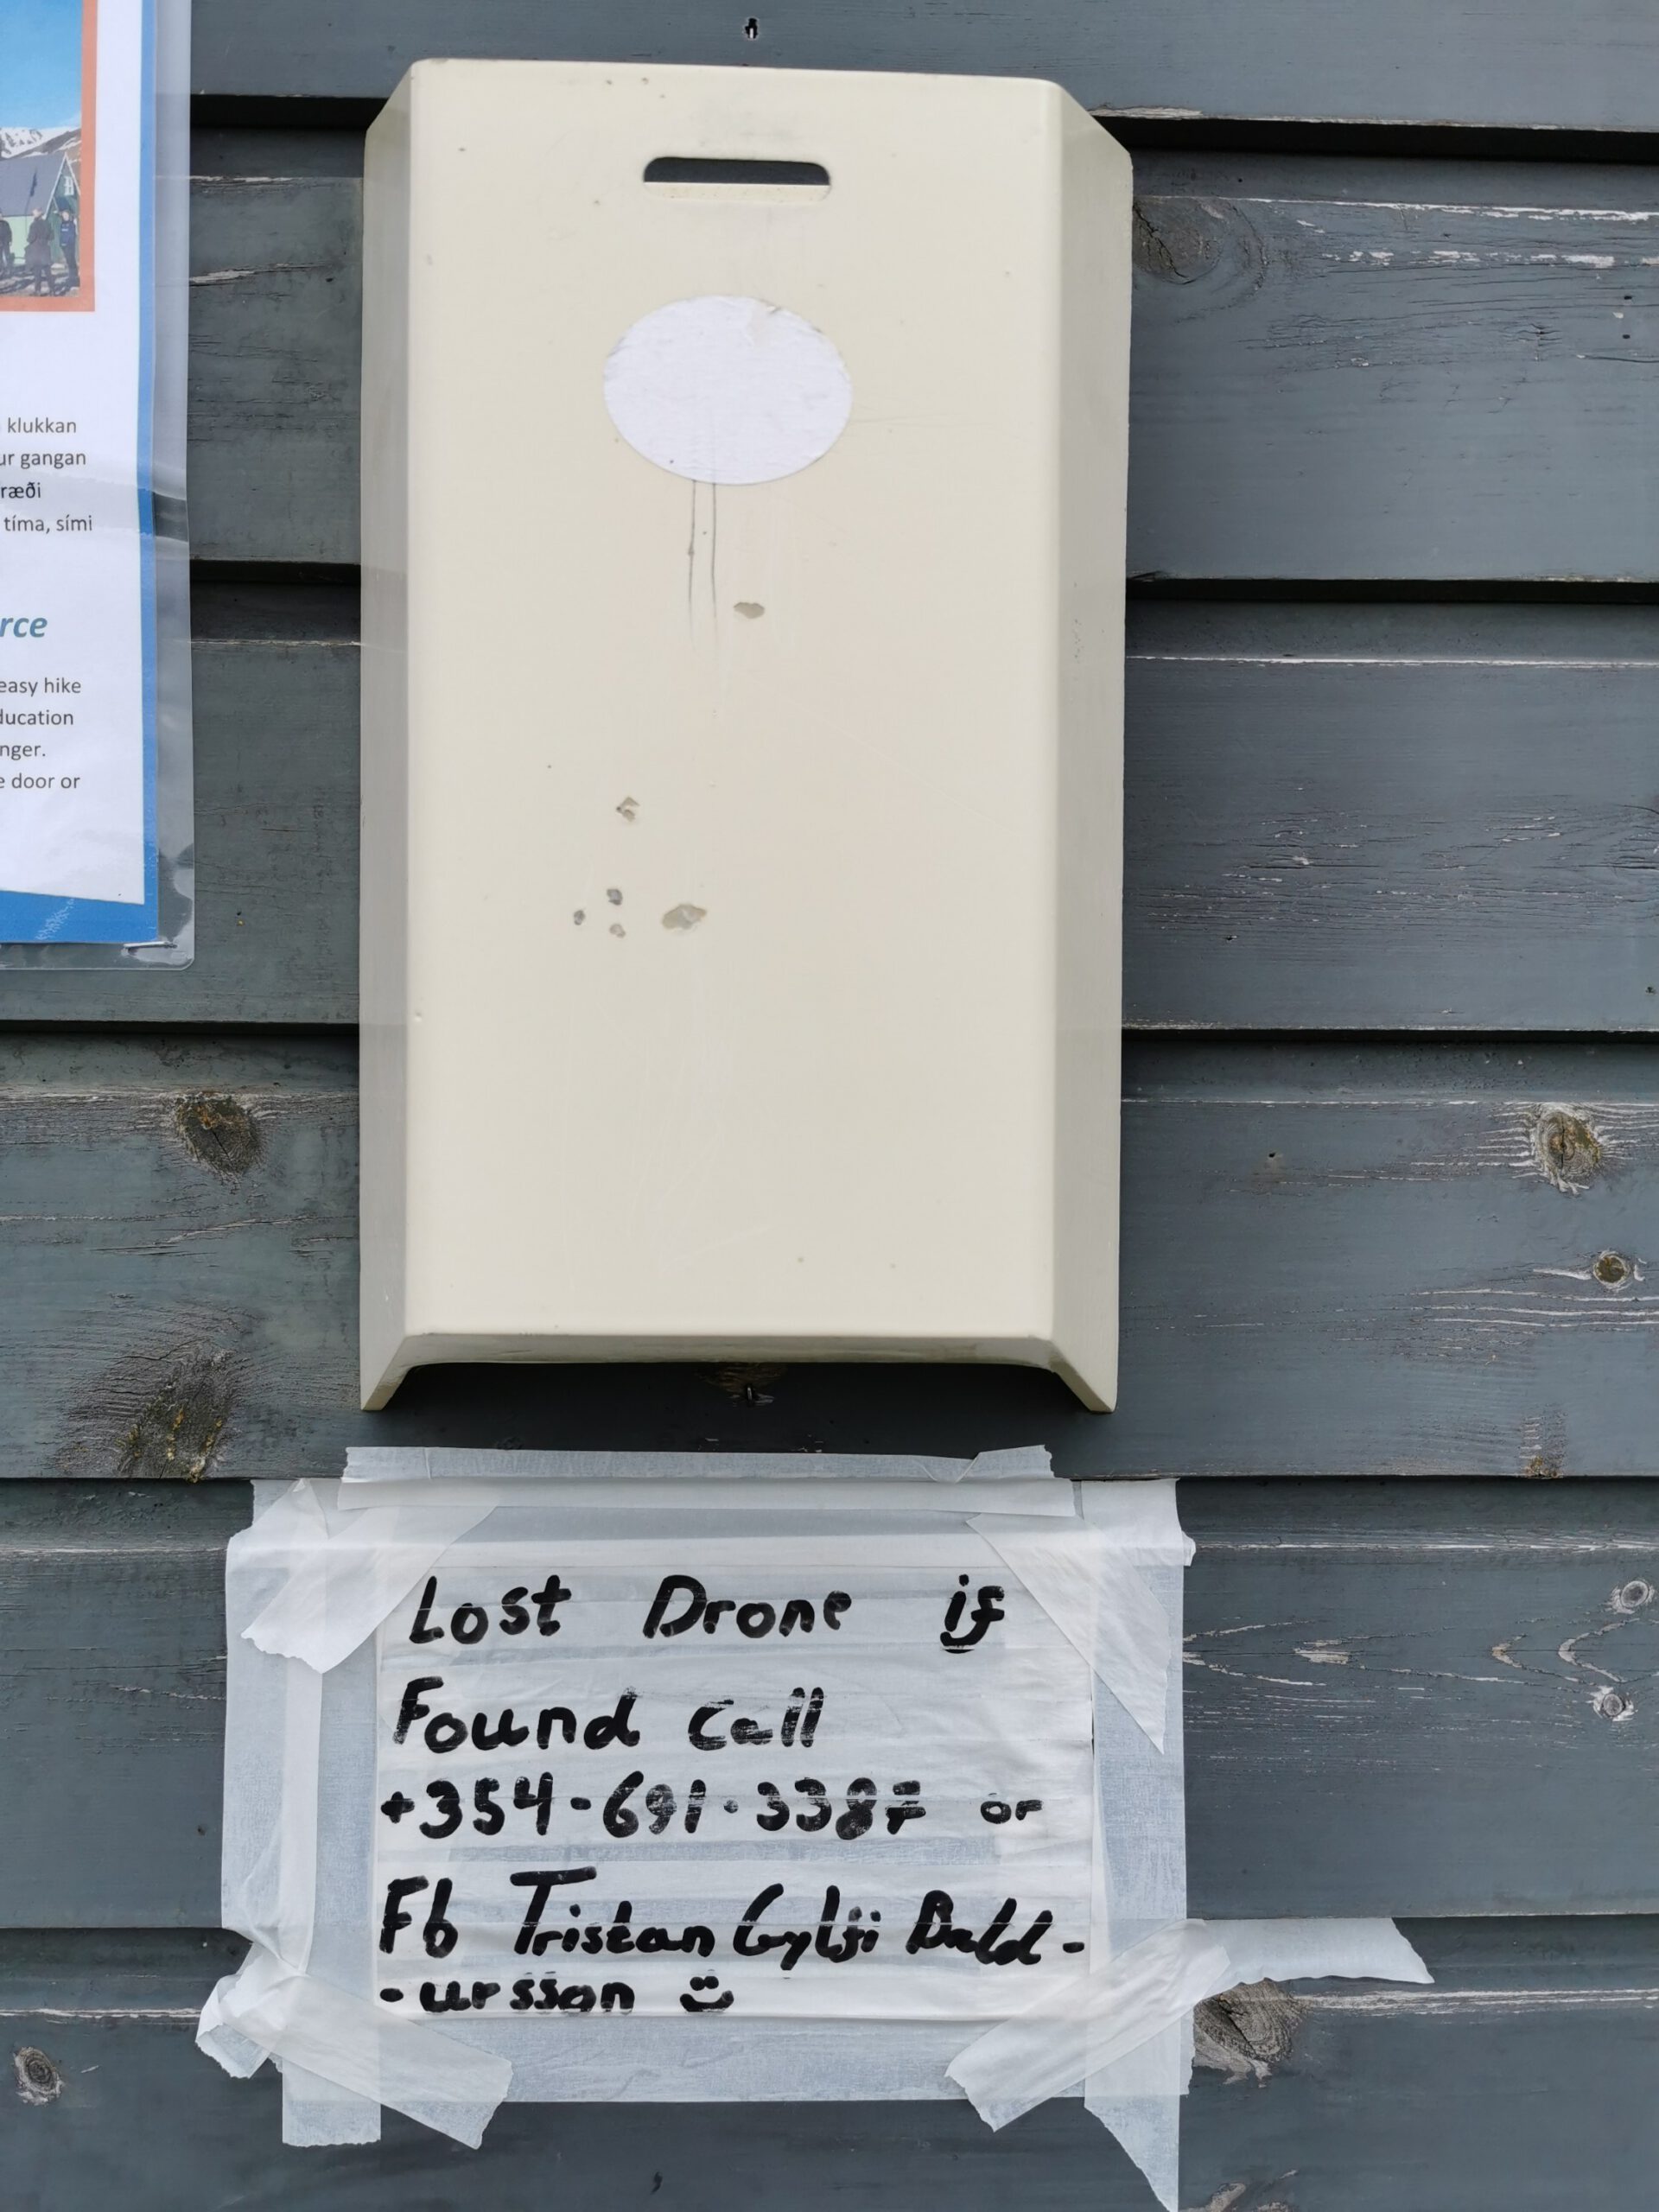 klukkan
ur gangan
ræði
tíma, sími
rce
easy hike
ducation
nger.
e door or
Lost Drone if
Found call
+354-691-3387 or
Fb Tristan Gylfi Bald-
-ursson